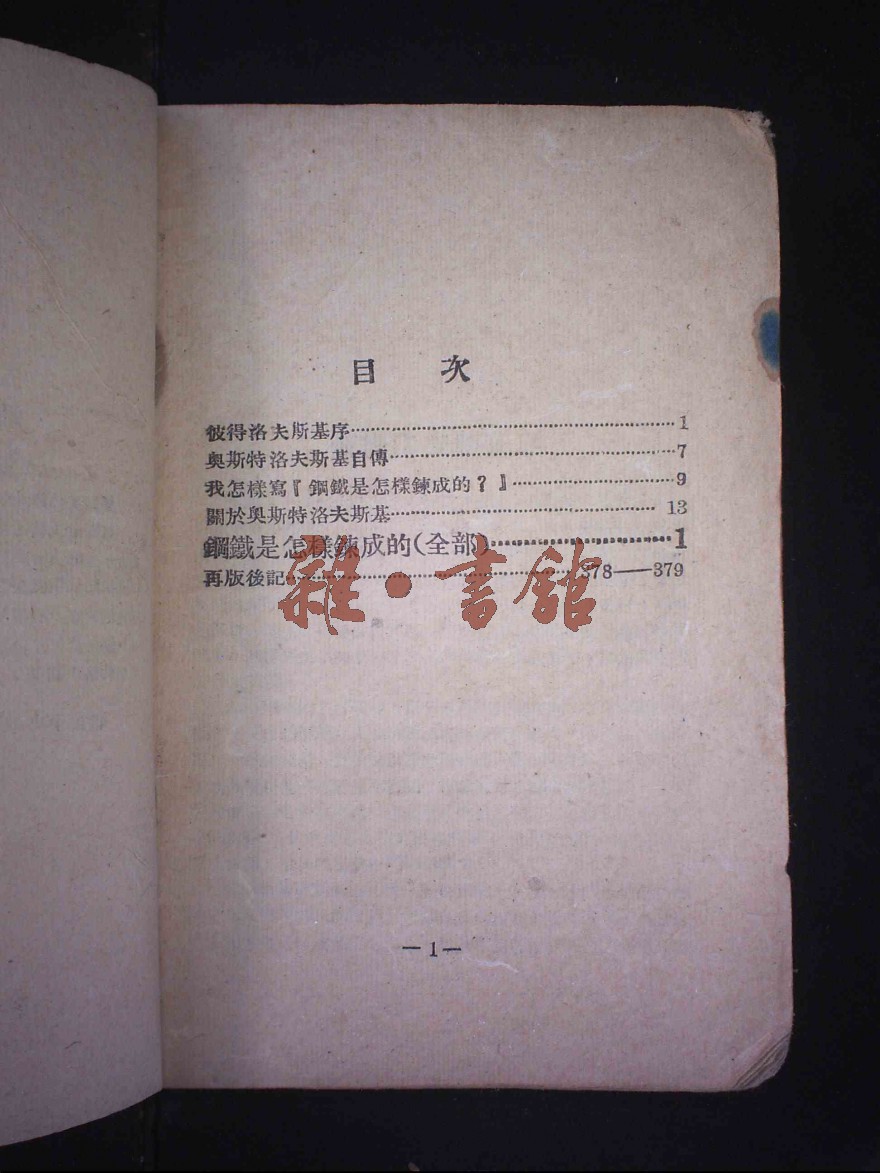 目 次
彼得洛夫斯基序……1
奧斯特洛夫斯基自傳……7
我怎樣寫『鋼鐵是怎樣鍊成的?』……9
關於奧斯特洛夫斯基……13
鋼鐵是怎樣鍊成的(全部)……1
再版後記……378——379
雜·書館
—1—